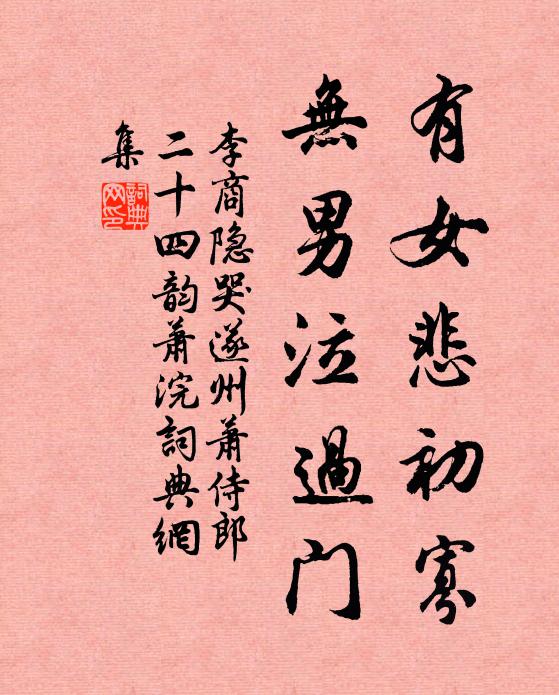 有女悲初寡
無男泣過门
李商隐哭遂州蕭侍郎
二十四韵蕭浣詞典網
集
詞典
网印